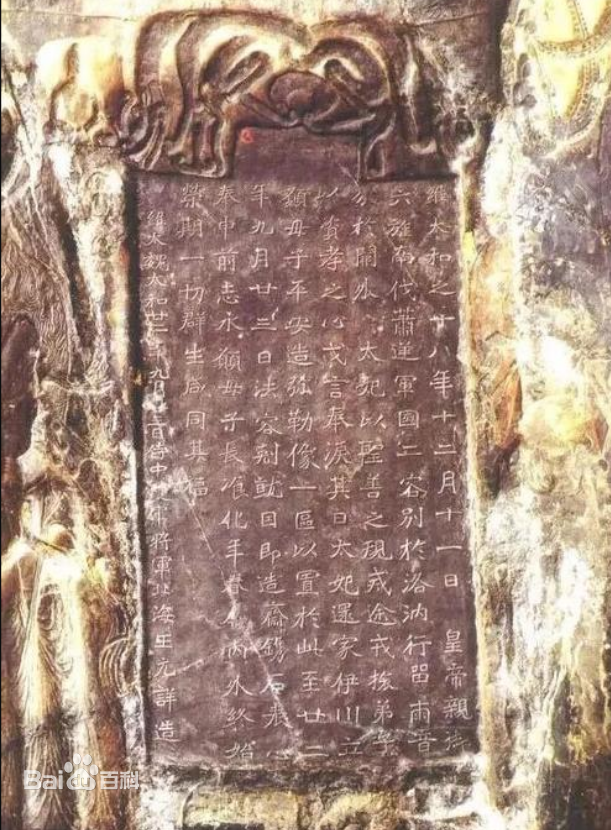 維太和之十八年十二月十一日 皇帝親御
六旌南伐蕭逆軍國二容別於洛汭行留兩音
分於闕外 太妃以聖善之規戒途戒旅弟子
以資孝之心戈言奉淚其日太妃還家伊川立
願母子平安造弥勒像一區以置於此至廿二
年九月廿三日法容刻就因即造齋鐫石表心
奉申前志永願母子長化年眷内外終始
榮期一切群生咸同其福
維大魏太和廿二年九月廿三日侍中護軍將軍北海王元詳造
Baidu百科